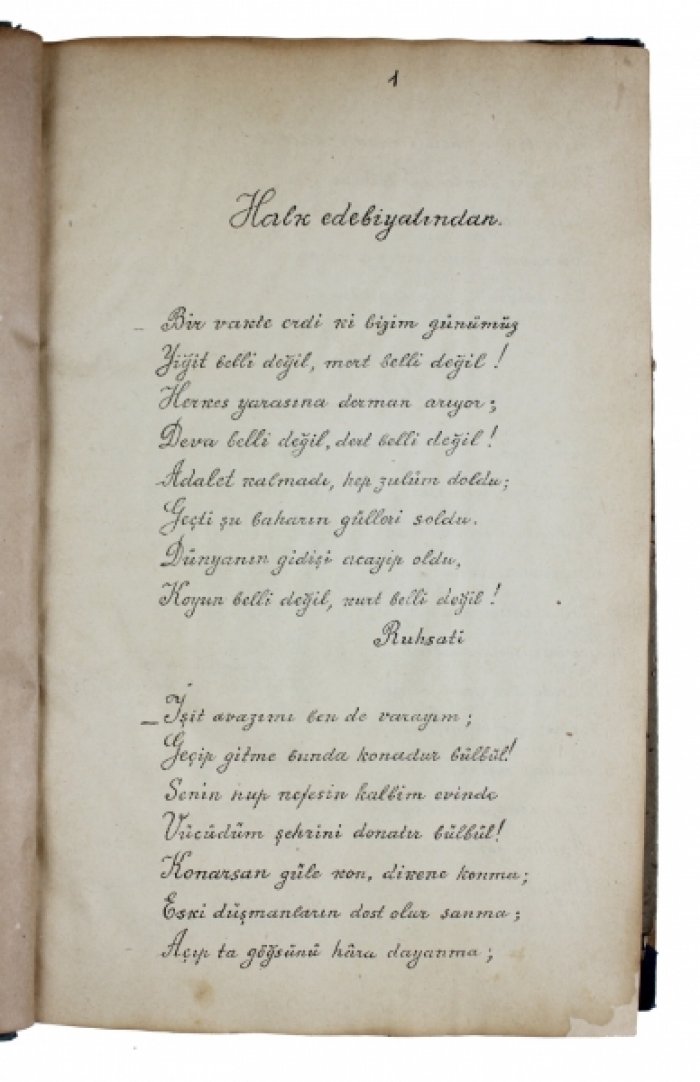 1
Halk edebiyatından.
_ Bir vakte erdi ki bizim günümüz
Yiğit belli değil, mert belli değil!
Herkes yarasına derman arıyor;
Deva belli değil, dert belli değil!
Adalet kalmadı, hep zulüm doldu;
Geçti şu baharın gülleri soldu.
Dünyanın gidişi acayip oldu,
Koyun belli değil, kurt belli değil!
Ruhsati
_ İşit avazımı ben de varayım;
Geçip gitme bunda konadur bülbül!
Senin hup nefesin kalbim evinde
Vücüdüm şehrini donatır bülbül!
Konarsan güle kon, dikene konma;
Eski düşmanların dost olur sanma;
Açıp ta göğsünü hâra dayanma;